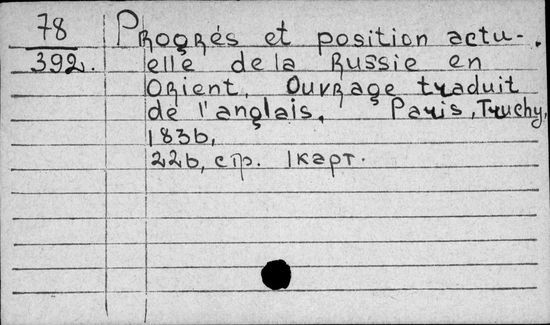 78
392.
Progrés et position actu-
elle de la Russie en
Orient. Ouvrage traduit
de l'anglais. Paris, Truchy,
1836,
226, стр. 1карт.